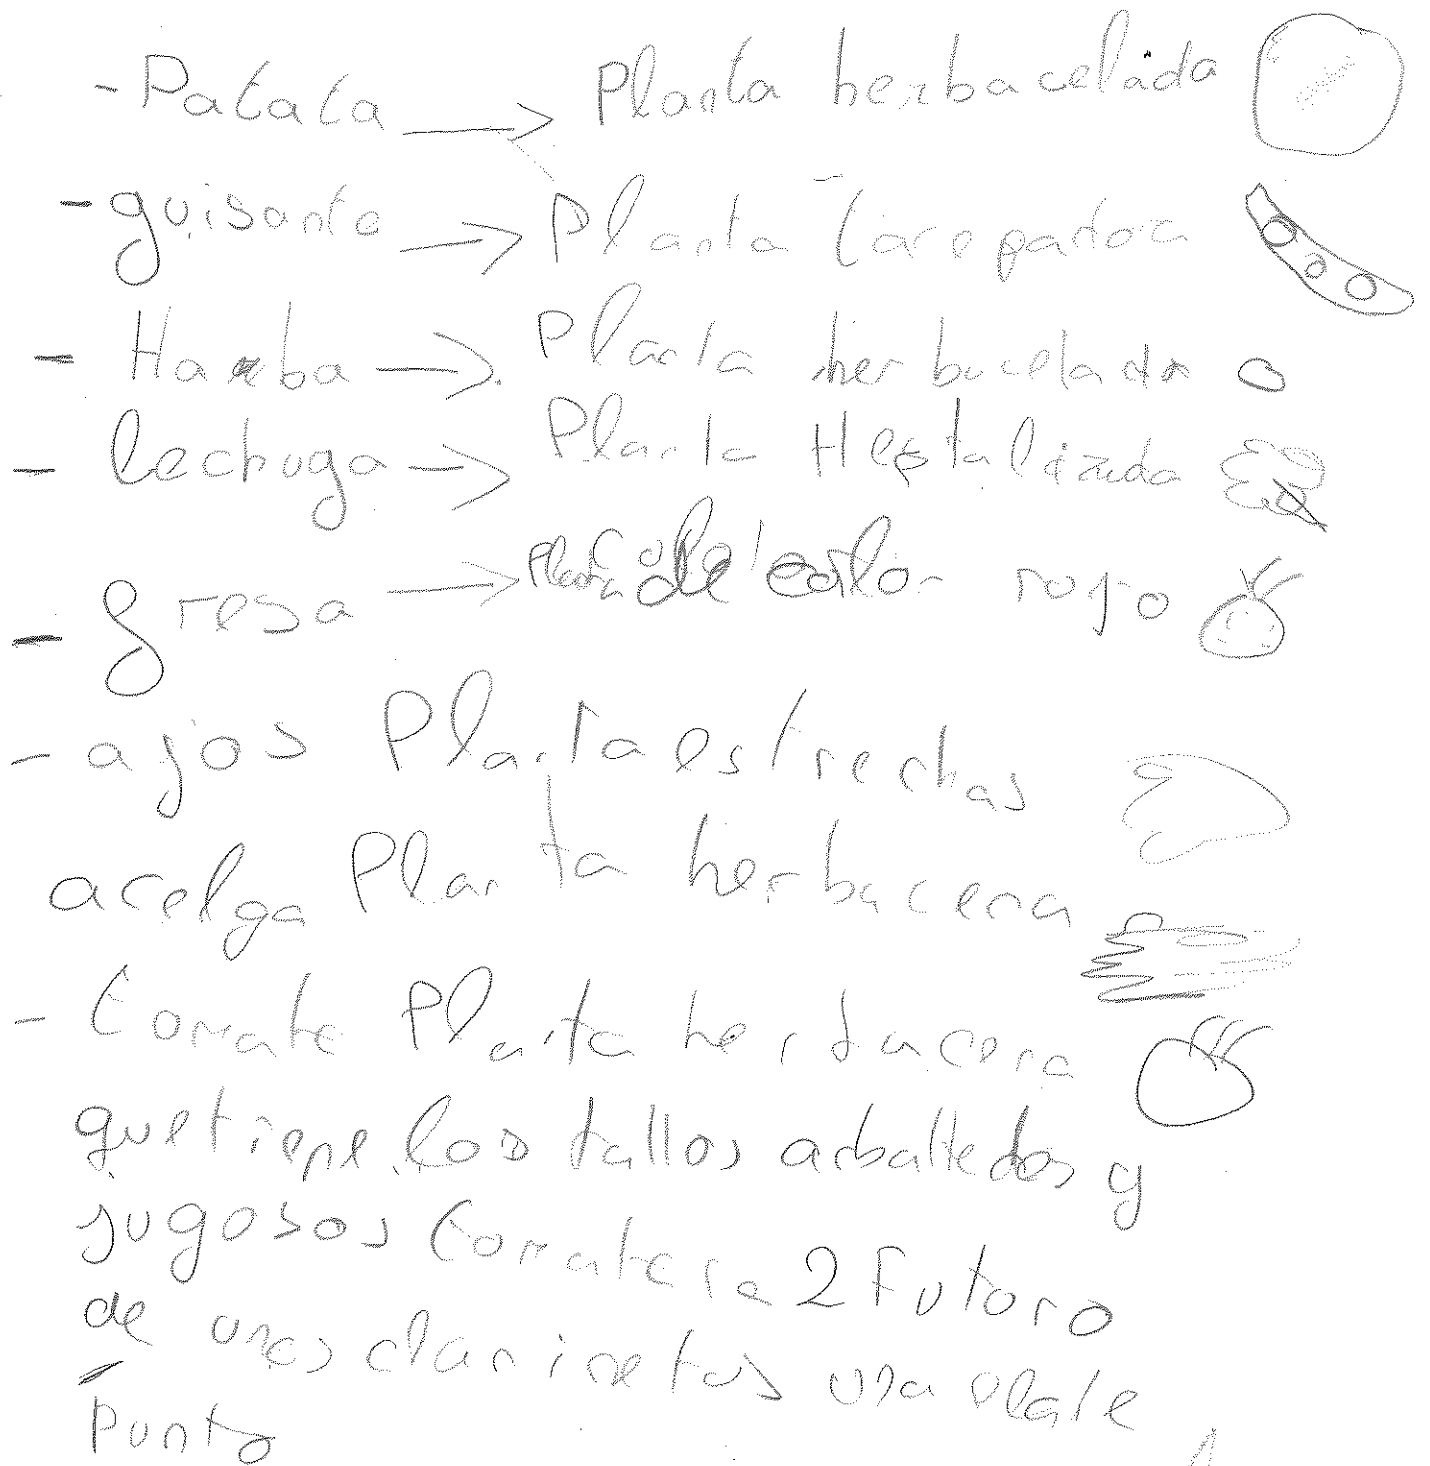 - Patata → Planta herbacelada
- guisante → Planta tarepadora
- Haba → Planta herbacelada
- lechuga → Planta
- fresa → Planta de color rojo
- ajos Planta estrechas
acelga Planta herbacera
- tomate Planta herbacera
que tiene los tallos y
jugosos tomatera 2 Futoro
de unos clarinetos una
Punto